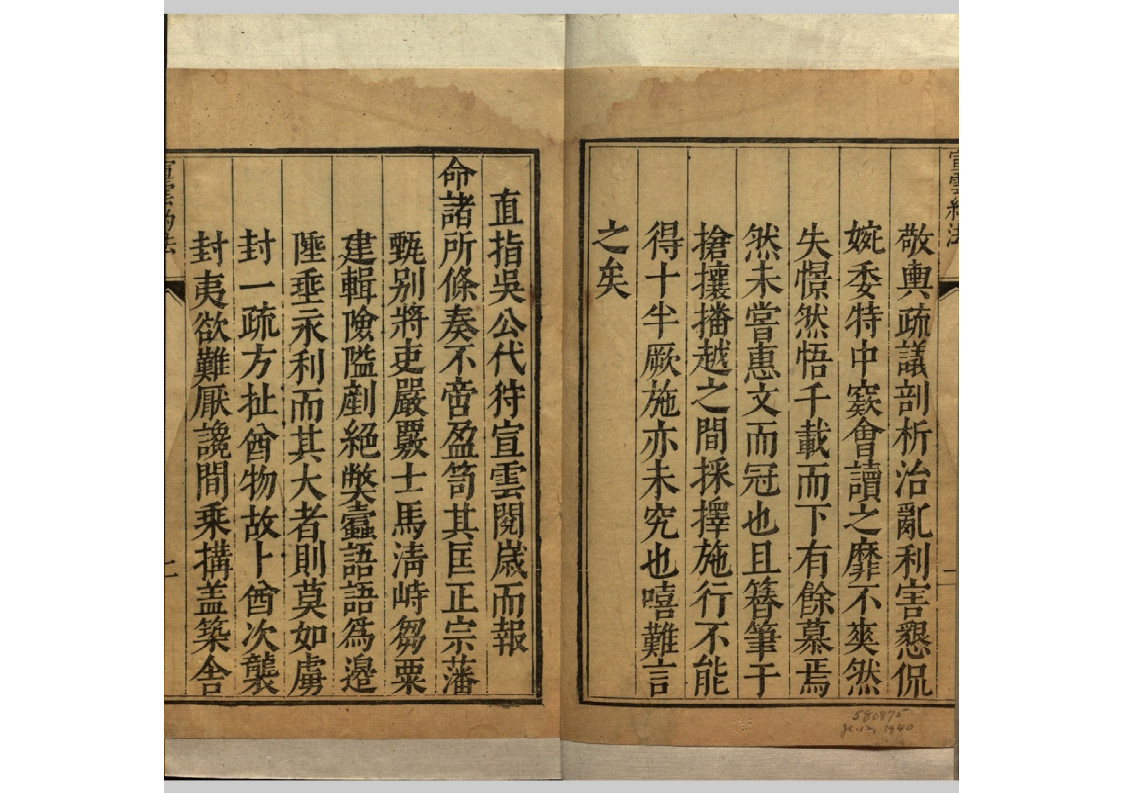 宣雲約法
敬輿疏議剖析治亂利害懇侃
婉委特中窾會讀之靡不爽然
失憬然悟千載而下有餘慕焉
然未嘗惠文而冠也且簪筆于
搶攘播越之間採擇施行不能
得十半厥施亦未究也嘻難言
之矣
一
580875
1940
直指吳公代狩宣雲閱歲而報
命諸所條奏不啻盈笥其匡正宗藩
甄別將吏嚴覈士馬清峙芻粟
建輯險隘剷絕獘蠧語語為邉
陲埀永利而其大者則莫如虜
封一疏方扯酋物故卜酋次襲
封夷欲難厭讒間乘搆盖築舎
宣雲約法
二